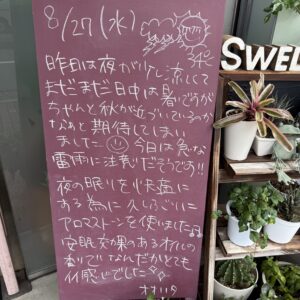 8/27(水)
34℃
昨日は夜が少し涼しくて
まだまだ日中は暑いですが
ちゃんと秋が近づいているのか
なぁと期待してしまい
ました 今日は急な
雷雨に注意だそうです!!
夜の眠りを快適に
ある為に久しぶりに
アロマストーンを使いました
安眠効果のあるオイルの
香りでなんだかとても
イイ感じでした
SWEL